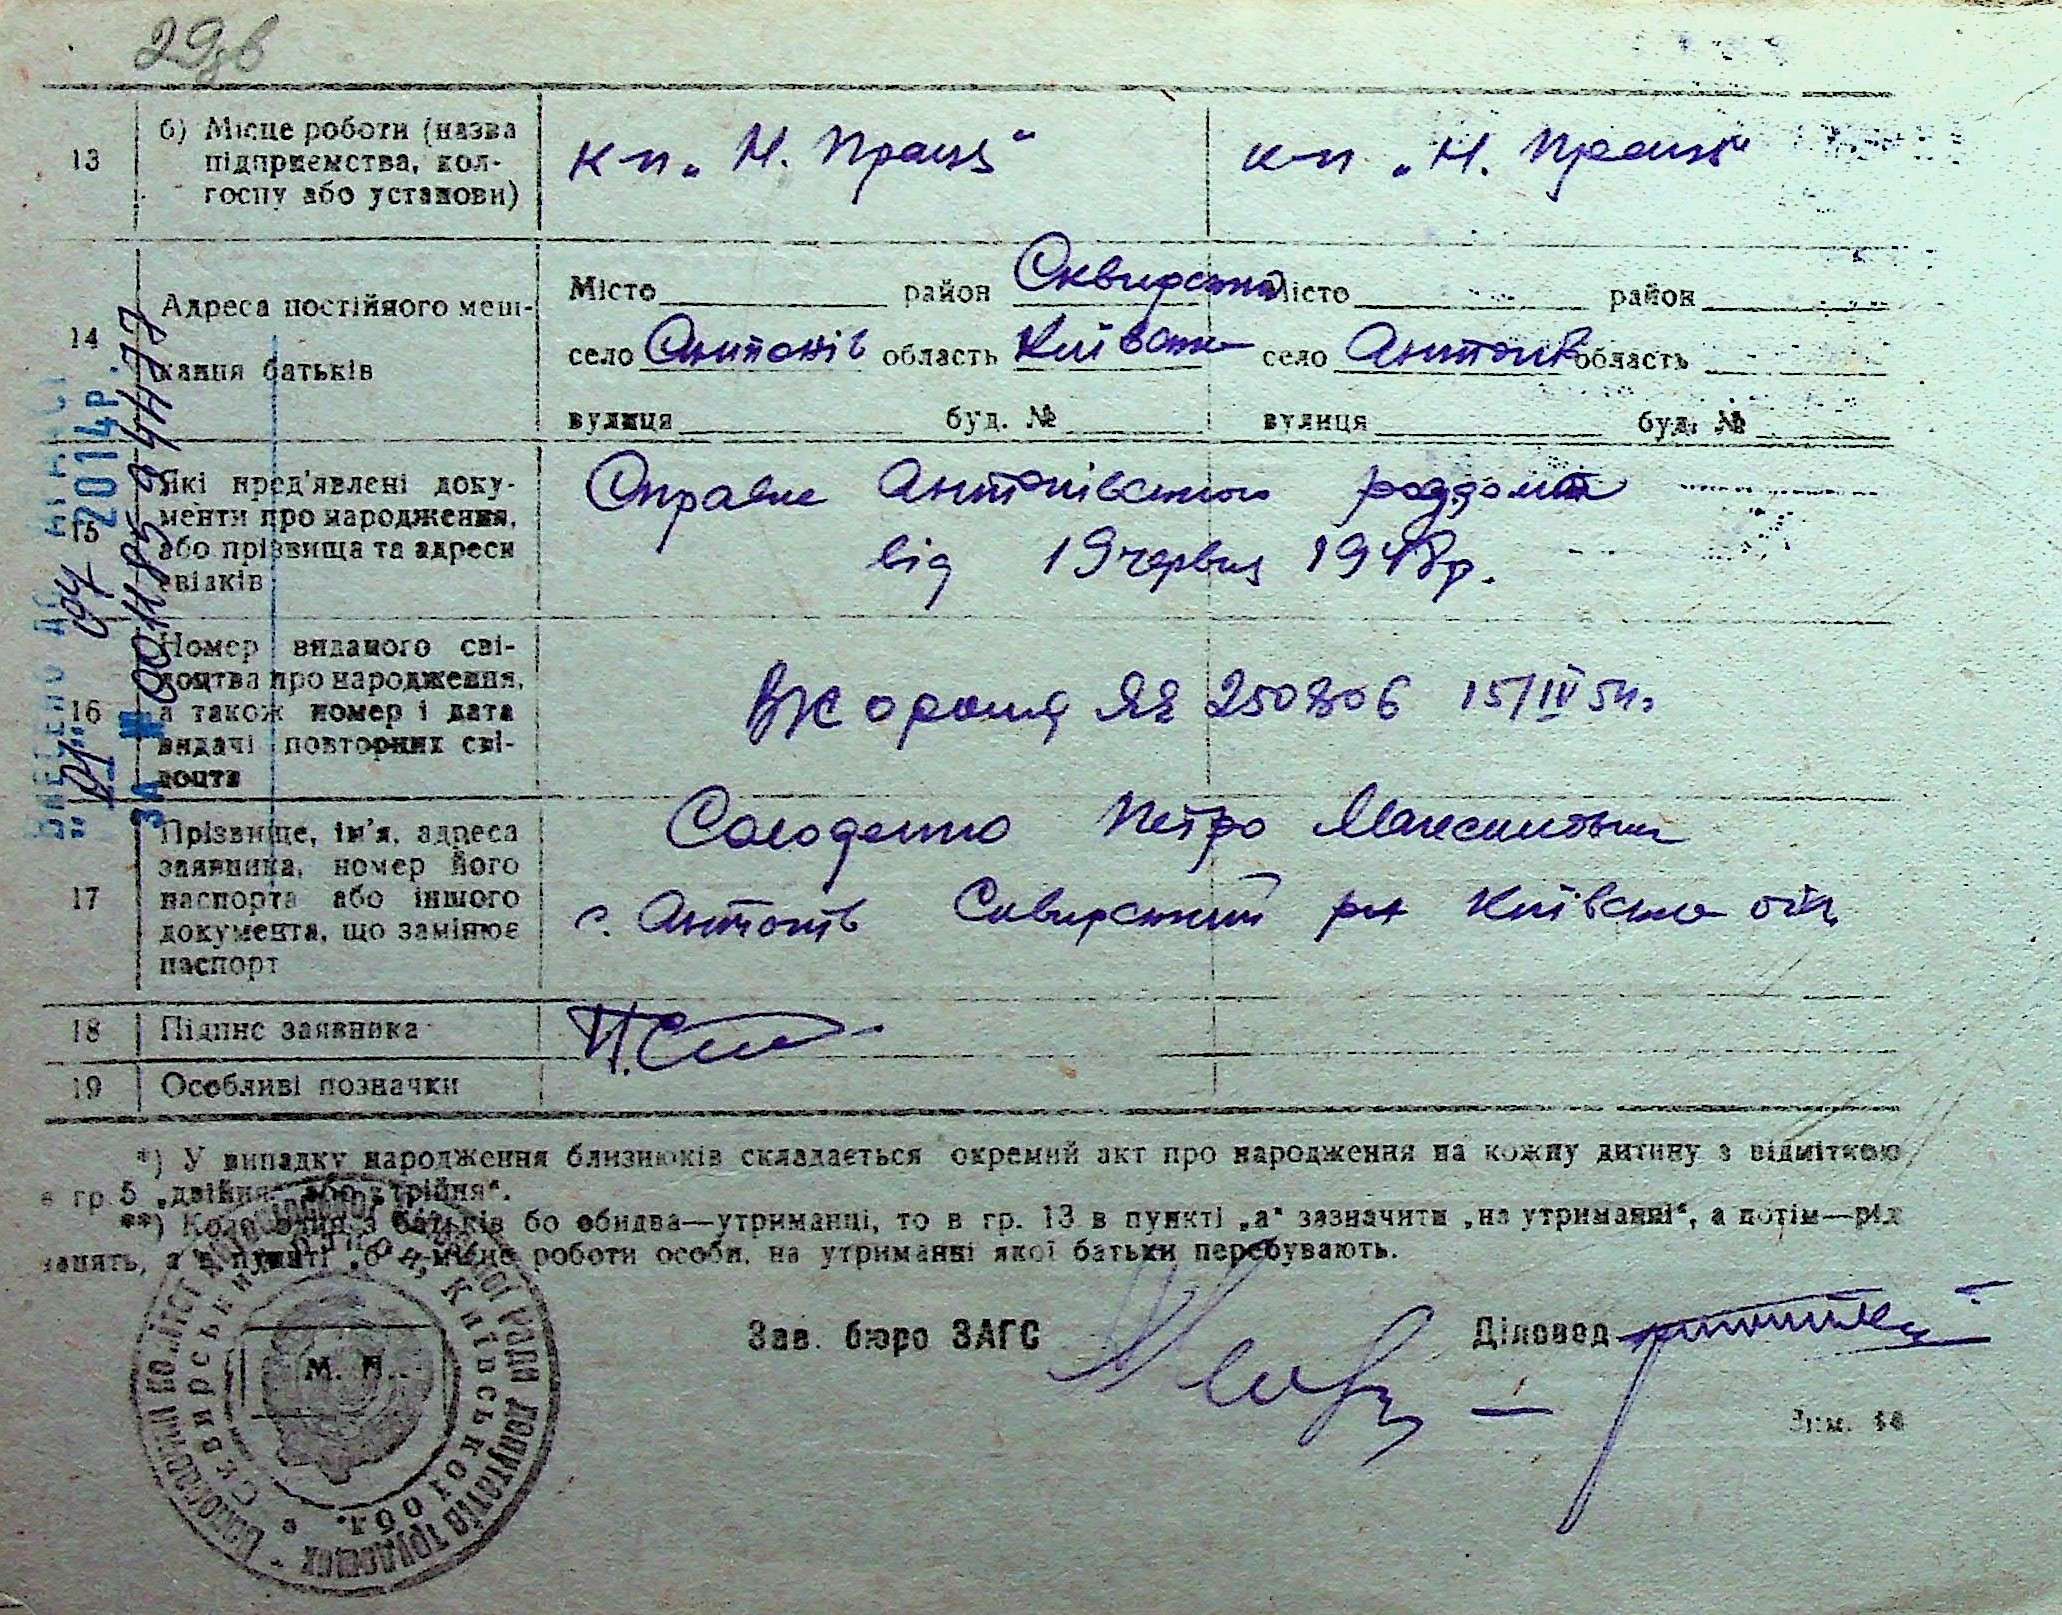 29зв
13 б) Місце роботи (назва підприємства, колгоспу або установи)
к-п „Н. Праця“ к-п „Н. Праця“
14 Адреса постійного мешкання батьків
Місто район Сквирський Місто район
село Антонів область Київська село Антонів область
вулиця буд. № вулиця буд. №
15 Які пред'явлені документи про народження, або прізвища та адреси свідків
Справка Антонівського роддома
від 19 червня 1948р.
16 Номер виданого свідоцтва про народження, а також номер і дата видачі повторних свідоцтв
250806 15/IV 54р.
17 Прізвище, ім'я, адреса заявника, номер його паспорта або іншого документа, що замінює паспорт
Солоденко Петро Максимович
с. Антонів Сквирський р-н Київська обл.
18 Підпис заявника
19 Особливі позначки
*) У випадку народження близнюків складається окремий акт про народження на кожну дитину з відміткою
в гр. 5 „двійня“ або „трійня“.
**) Коли один з батьків бо обидва—утриманці, то в гр. 13 в пункті „а“ зазначити „на утриманні“, а потім—рід
занять, а в пункті „б“—місце роботи особи, на утриманні якої батьки перебувають.
Зав. бюро ЗАГС Діловод
М. П.
Сквирський район, Київської обл.
2014р.
ЗА № 00118150